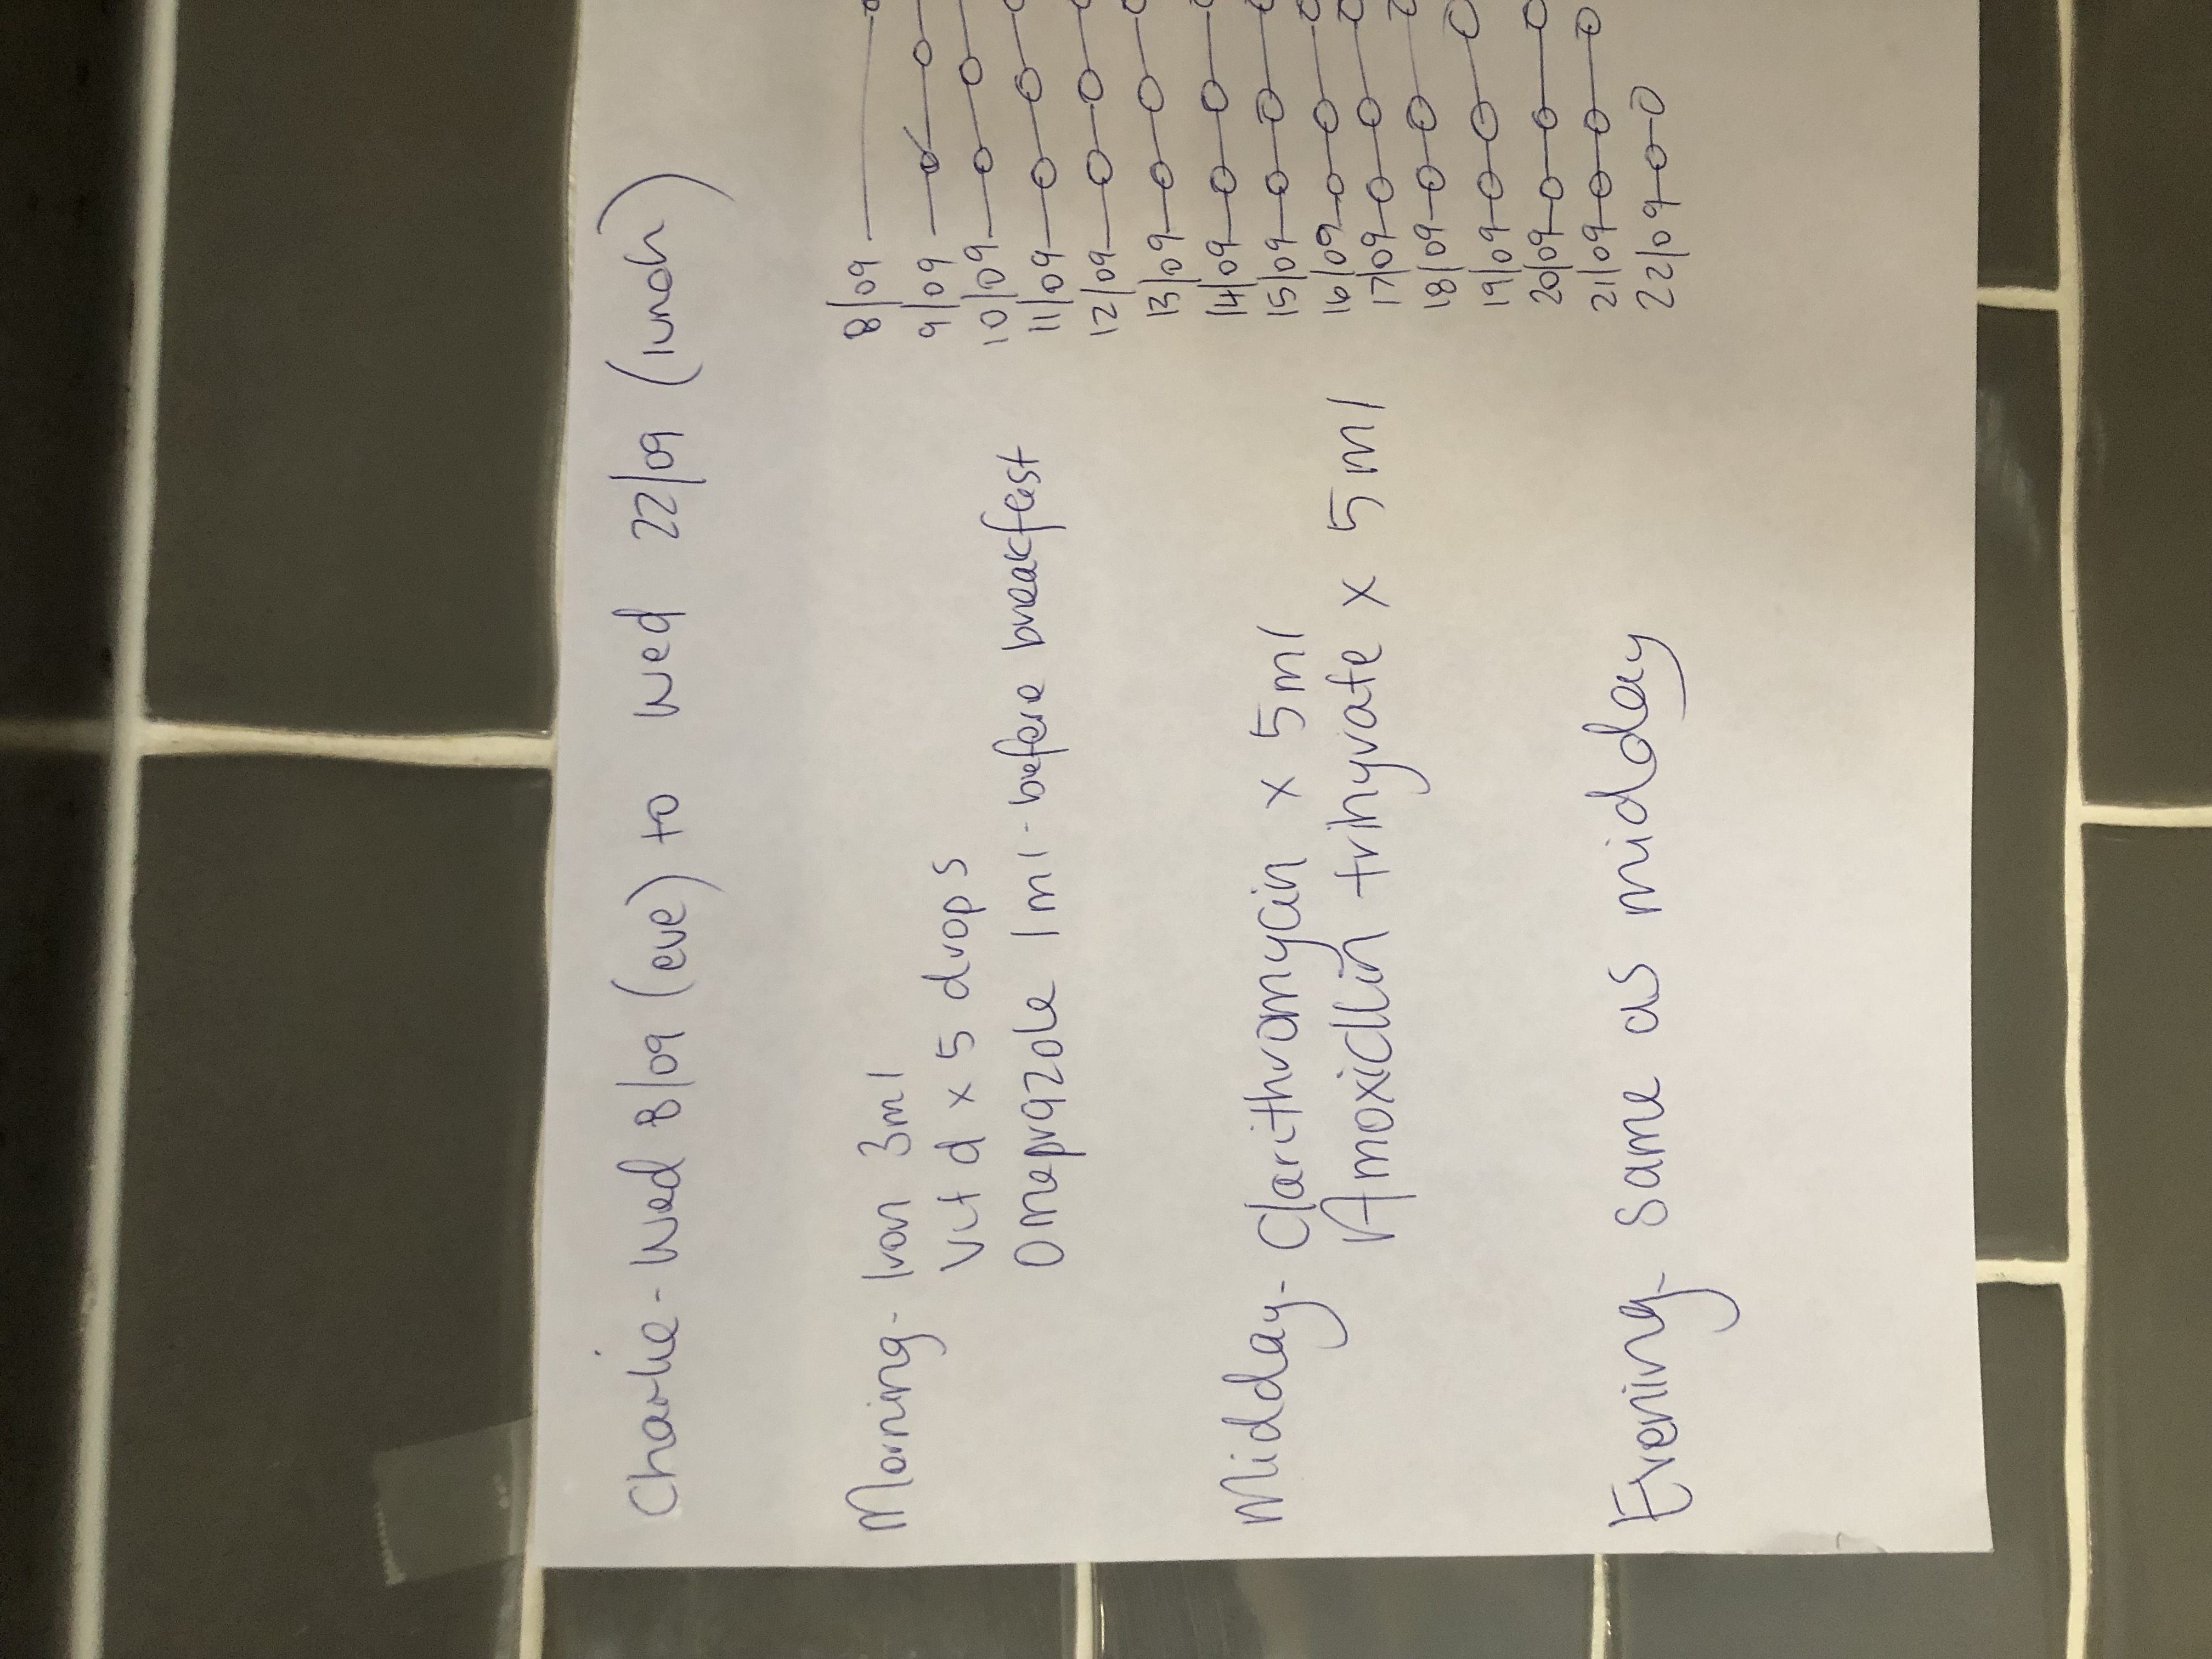 Charlie - Wed 8/09 (eve) to Wed 22/09 (lunch)
Morning - Iron 3ml
Vit d x 5 drops
Omeprazole 1ml - before breakfast
Midday - Clarithromycin x 5ml
Amoxicillin trihyrate x 5ml
Evening - Same as midday
8/09
9/09
10/09
11/09
12/09
13/09
14/09
15/09
16/09
17/09
18/09
19/09
20/09
21/09
22/09